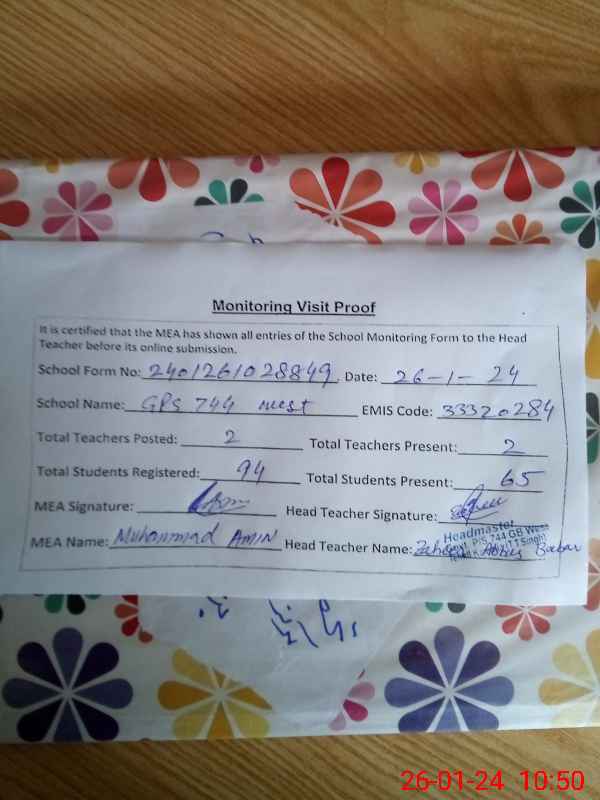 Monitoring Visit Proof
It is certified that the MEA has shown all entries of the School Monitoring Form to the Head
Teacher before its online submission.
School Form No: 2401261028849 Date: 26-1-24
School Name: GPS 744 west EMIS Code: 33320284
Total Teachers Posted: 2 Total Teachers Present: 2
Total Students Registered: 94 Total Students Present: 65
MEA Signature: Head Teacher Signature:
Headmaster
P/S 744 GB West
MEA Name: Muhammad Amin Head Teacher Name: Zaheer Abbas Babar
26-01-24 10:50